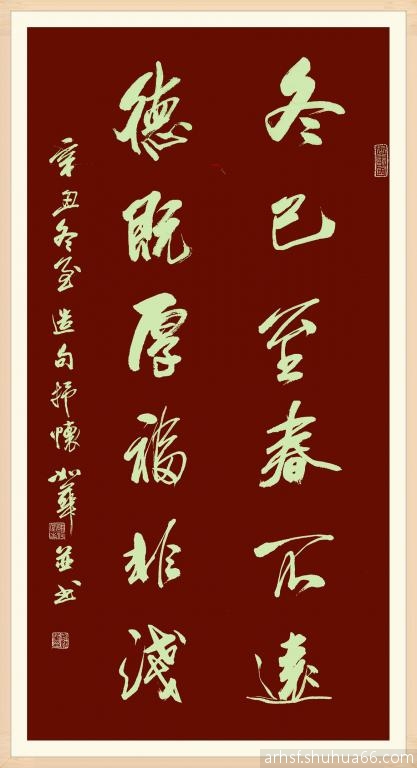 冬已至春不遠
德既厚福非淺
辛丑冬至造句抒懷如華並书
arhsf.shuhua66.com